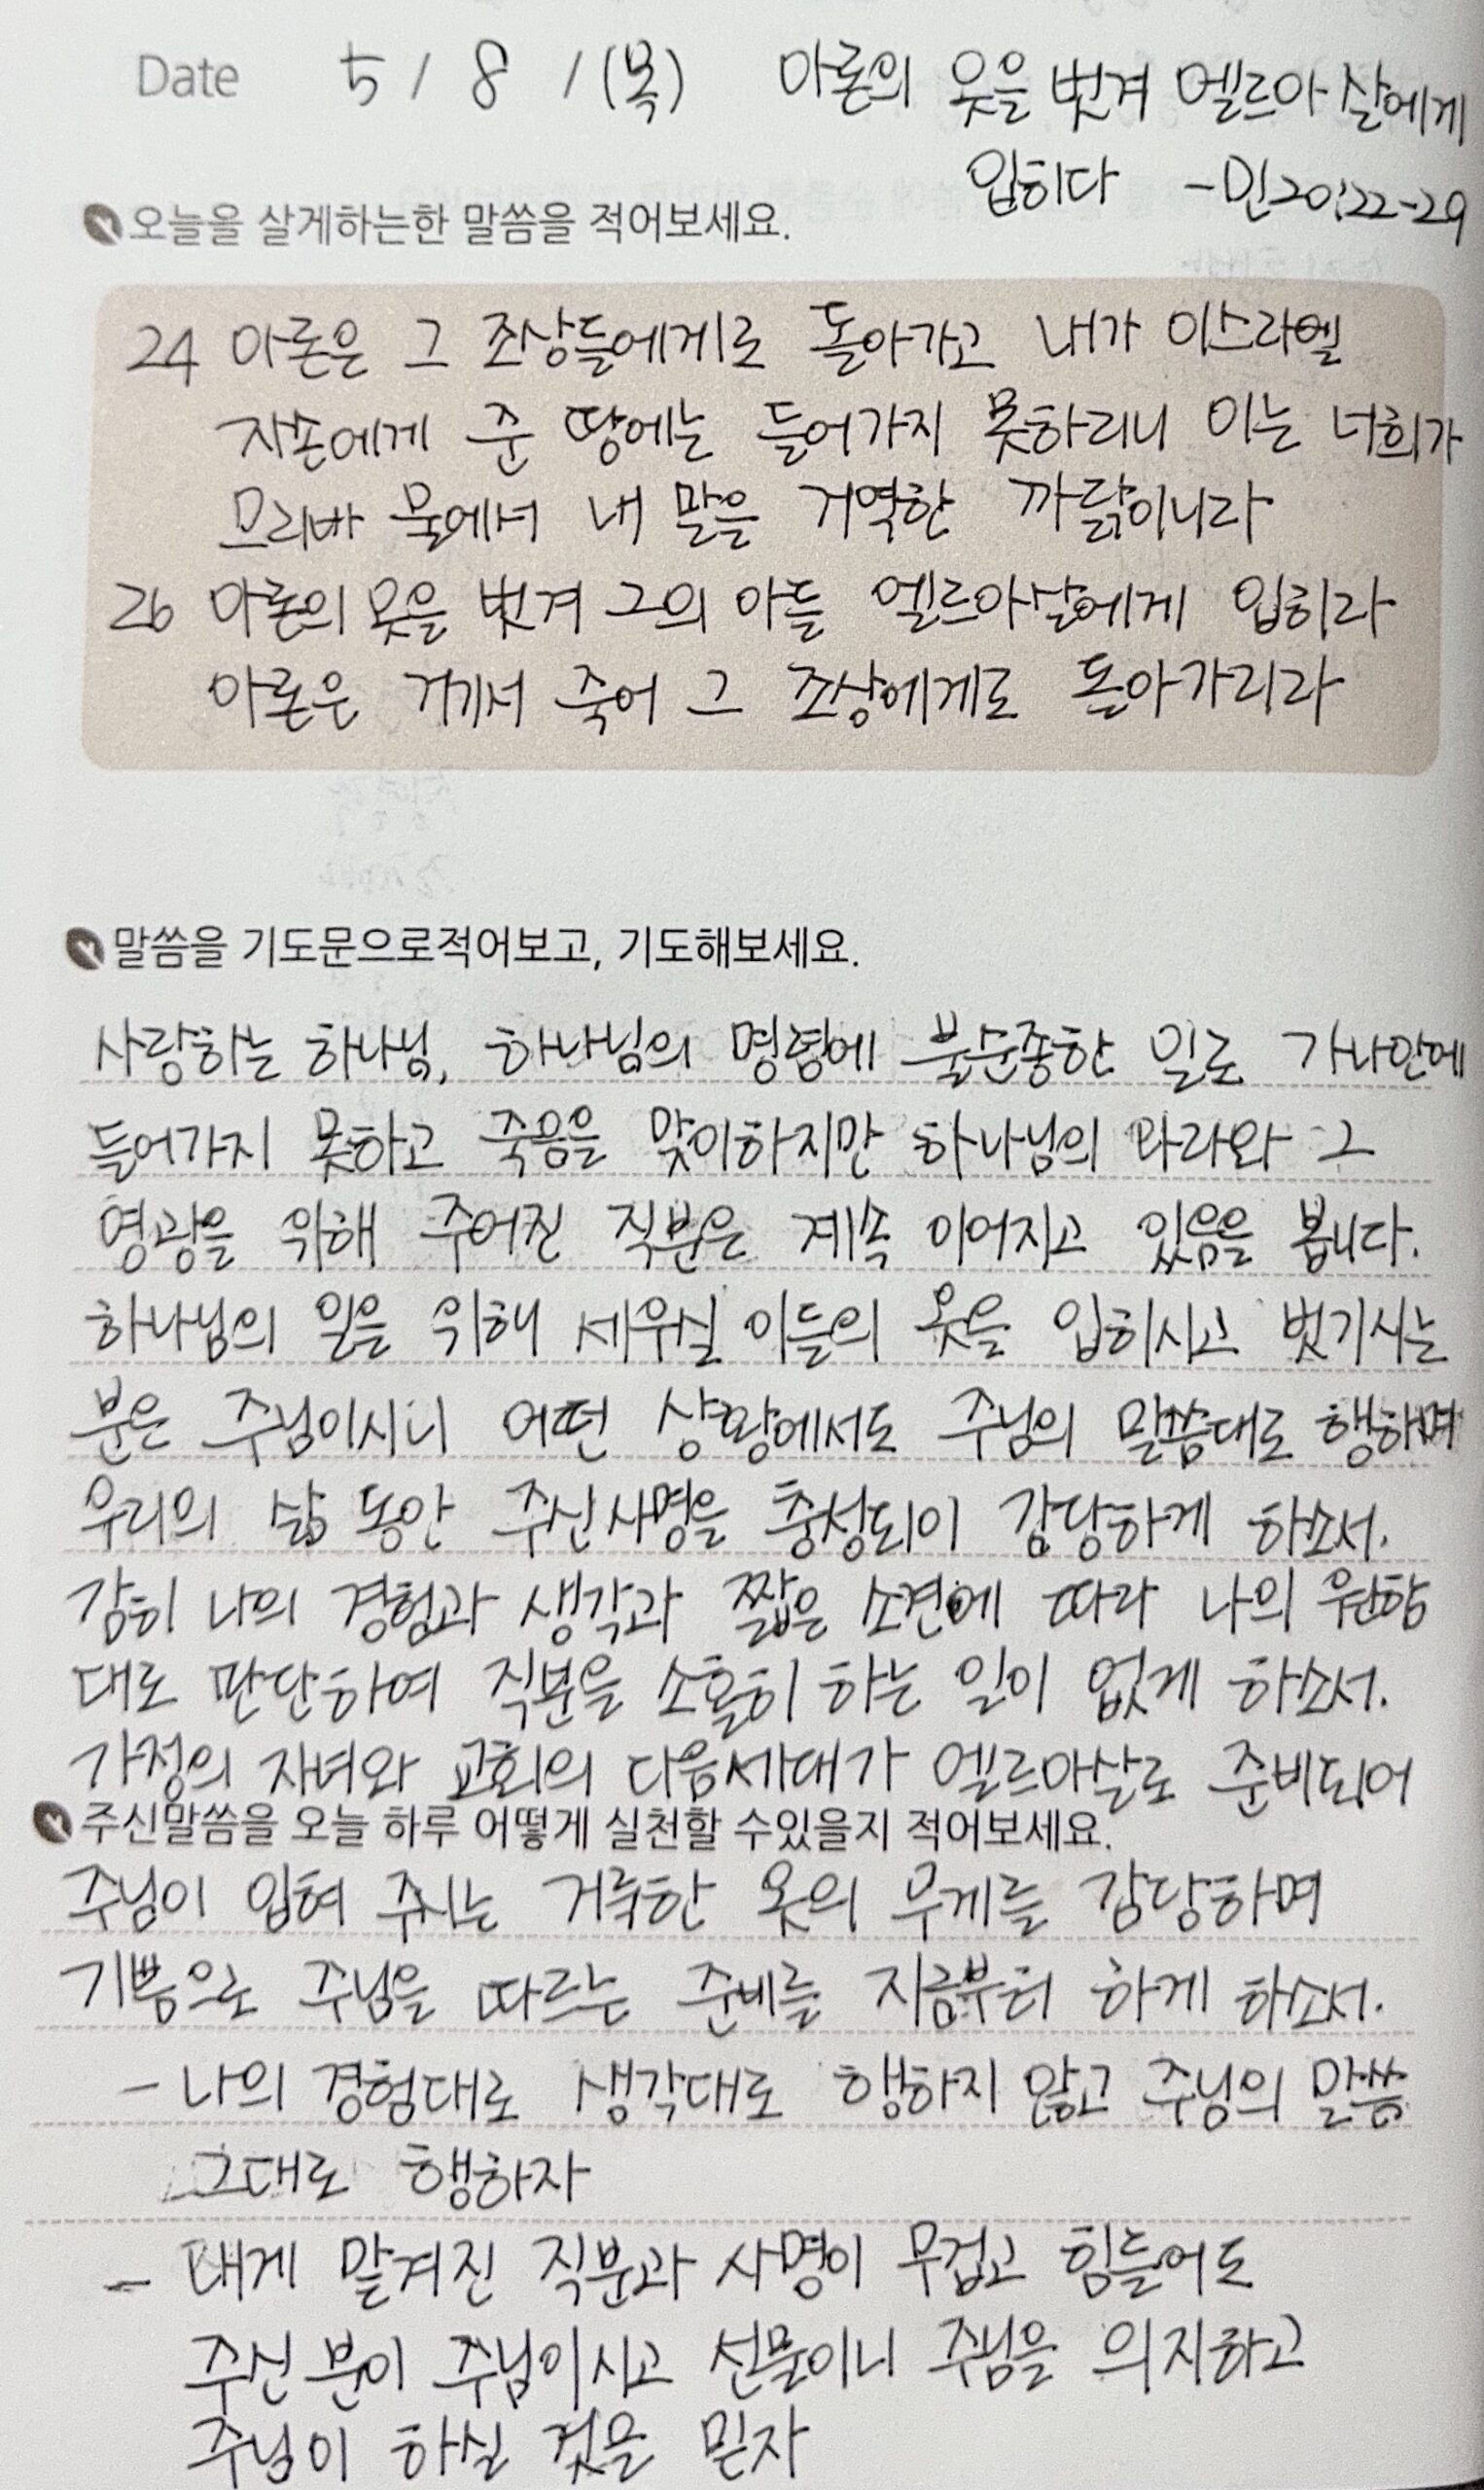 Date 5 / 8 / (목) 아론의 옷을 벗겨 엘르아살에게
입히다 -민20:22-29
오늘을 살게하는한 말씀을 적어보세요.
24 아론은 그 조상들에게로 돌아가고 내가 이스라엘
자손에게 준 땅에는 들어가지 못하리니 이는 너희가
므리바 물에서 내 말을 거역한 까닭이니라
26 아론의 옷을 벗겨 그의 아들 엘르아살에게 입히라
아론은 거기서 죽어 그 조상에게로 돌아가리라
말씀을 기도문으로적어보고, 기도해보세요.
사랑하는 하나님, 하나님의 명령에 불순종한 일로 가나안에
들어가지 못하고 죽음을 맞이하지만 하나님의 나라와 그
영광을 위해 주어진 직분은 계속 이어지고 있음을 봅니다.
하나님의 일을 위해 세우실 이들의 옷을 입히시고 벗기시는
분은 주님이시니 어떤 상황에서도 주님의 말씀대로 행하며
우리의 삶 동안 주신사명을 충성되이 감당하게 하소서.
감히 나의 경험과 생각과 짧은 소견에 따라 나의 원함
대로 판단하여 직분을 소홀히 하는 일이 없게 하소서.
가정의 자녀와 교회의 다음세대가 엘르아살로 준비되어
주신말씀을 오늘 하루 어떻게 실천할 수있을지 적어보세요.
주님이 입혀 주시는 거룩한 옷의 무게를 감당하며
기쁨으로 주님을 따르는 준비를 지금부터 하게 하소서.
- 나의 경험대로 생각대로 행하지 않고 주님의 말씀
그대로 행하자
- 내게 맡겨진 직분과 사명이 무겁고 힘들어도
주신 분이 주님이시고 선물이니 주님을 의지하고
주님이 하실 것을 믿자